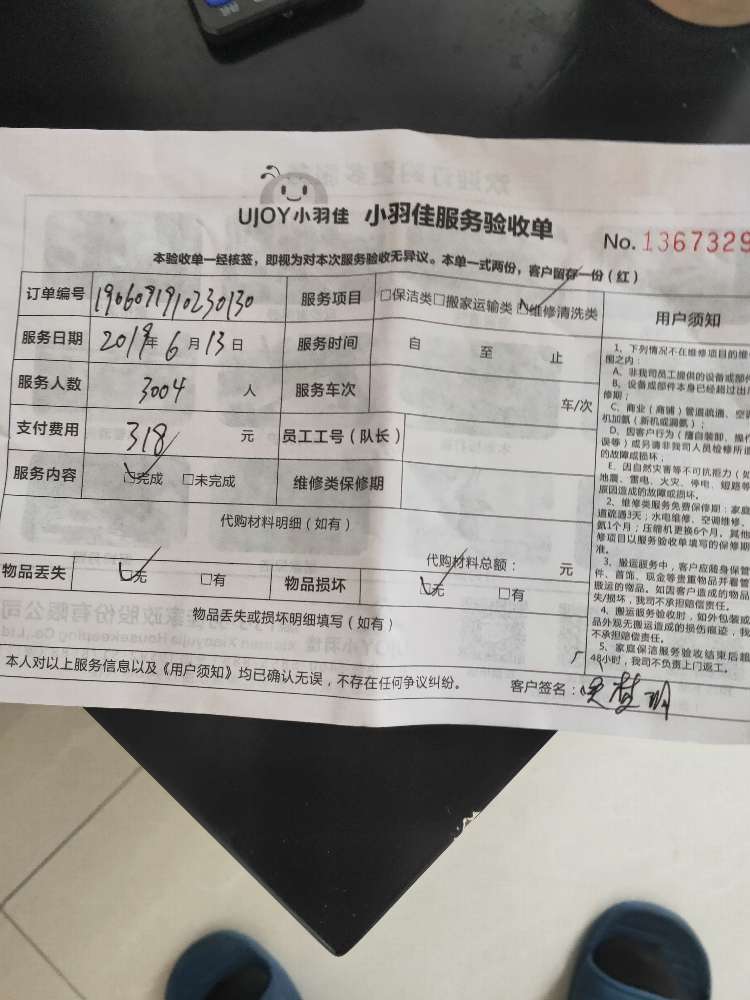 UJOY小羽佳 小羽佳服务验收单
No. 1367329
本验收单一经核签，即视为对本次服务验收无异议。本单一式两份，客户留存一份（红）
订单编号 1906091910230130 服务项目 □保洁类□搬家运输类□维修清洗类
服务日期 2019年 6 月 13 日 服务时间 自 至 止
服务人数 3004 人 服务车次 车/次
支付费用 318 元 员工工号（队长）
服务内容 □完成 □未完成 维修类保修期
代购材料明细（如有）
代购材料总额： 元
物品丢失 □无 □有 物品损坏 □无 □有
物品丢失或损坏明细填写（如有）
本人对以上服务信息以及《用户须知》均已确认无误，不存在任何争议纠纷。 客户签名：
用户须知
1、下列情况不在维修项目的维
围之内：
A、非我司员工提供的设备或部件
B、设备或部件本身已经超过出
修期；
C、商业（商铺）管道疏通、空
机加氨（新机或漏氨）；
D、因客户行为（擅自装卸、操作
误等）或另请非我司人员检修所造
的故障或损坏；
E、因自然灾害等不可抗能力（如
地震、雷电、火灾、停电、短路等
原因造成的故障或损坏。
2、维修类服务免费保修期：家庭
道疏通3天；水电维修、空调维修、
氨1个月；压缩机更换6个月，其他
修项目以服务验收单填写的保修期
准。
3、搬运服务中，客户应随身保管
件、首饰、现金等贵重物品并看管
搬运的物品。如因客户造成的物品
失/损坏，我司不承担赔偿责任。
4、搬运服务验收时，如外包装或
品外观无搬运造成的损伤痕迹，我
不承担赔偿责任。
5、家庭保洁服务验收结束后超
48小时，我司不负责上门返工。